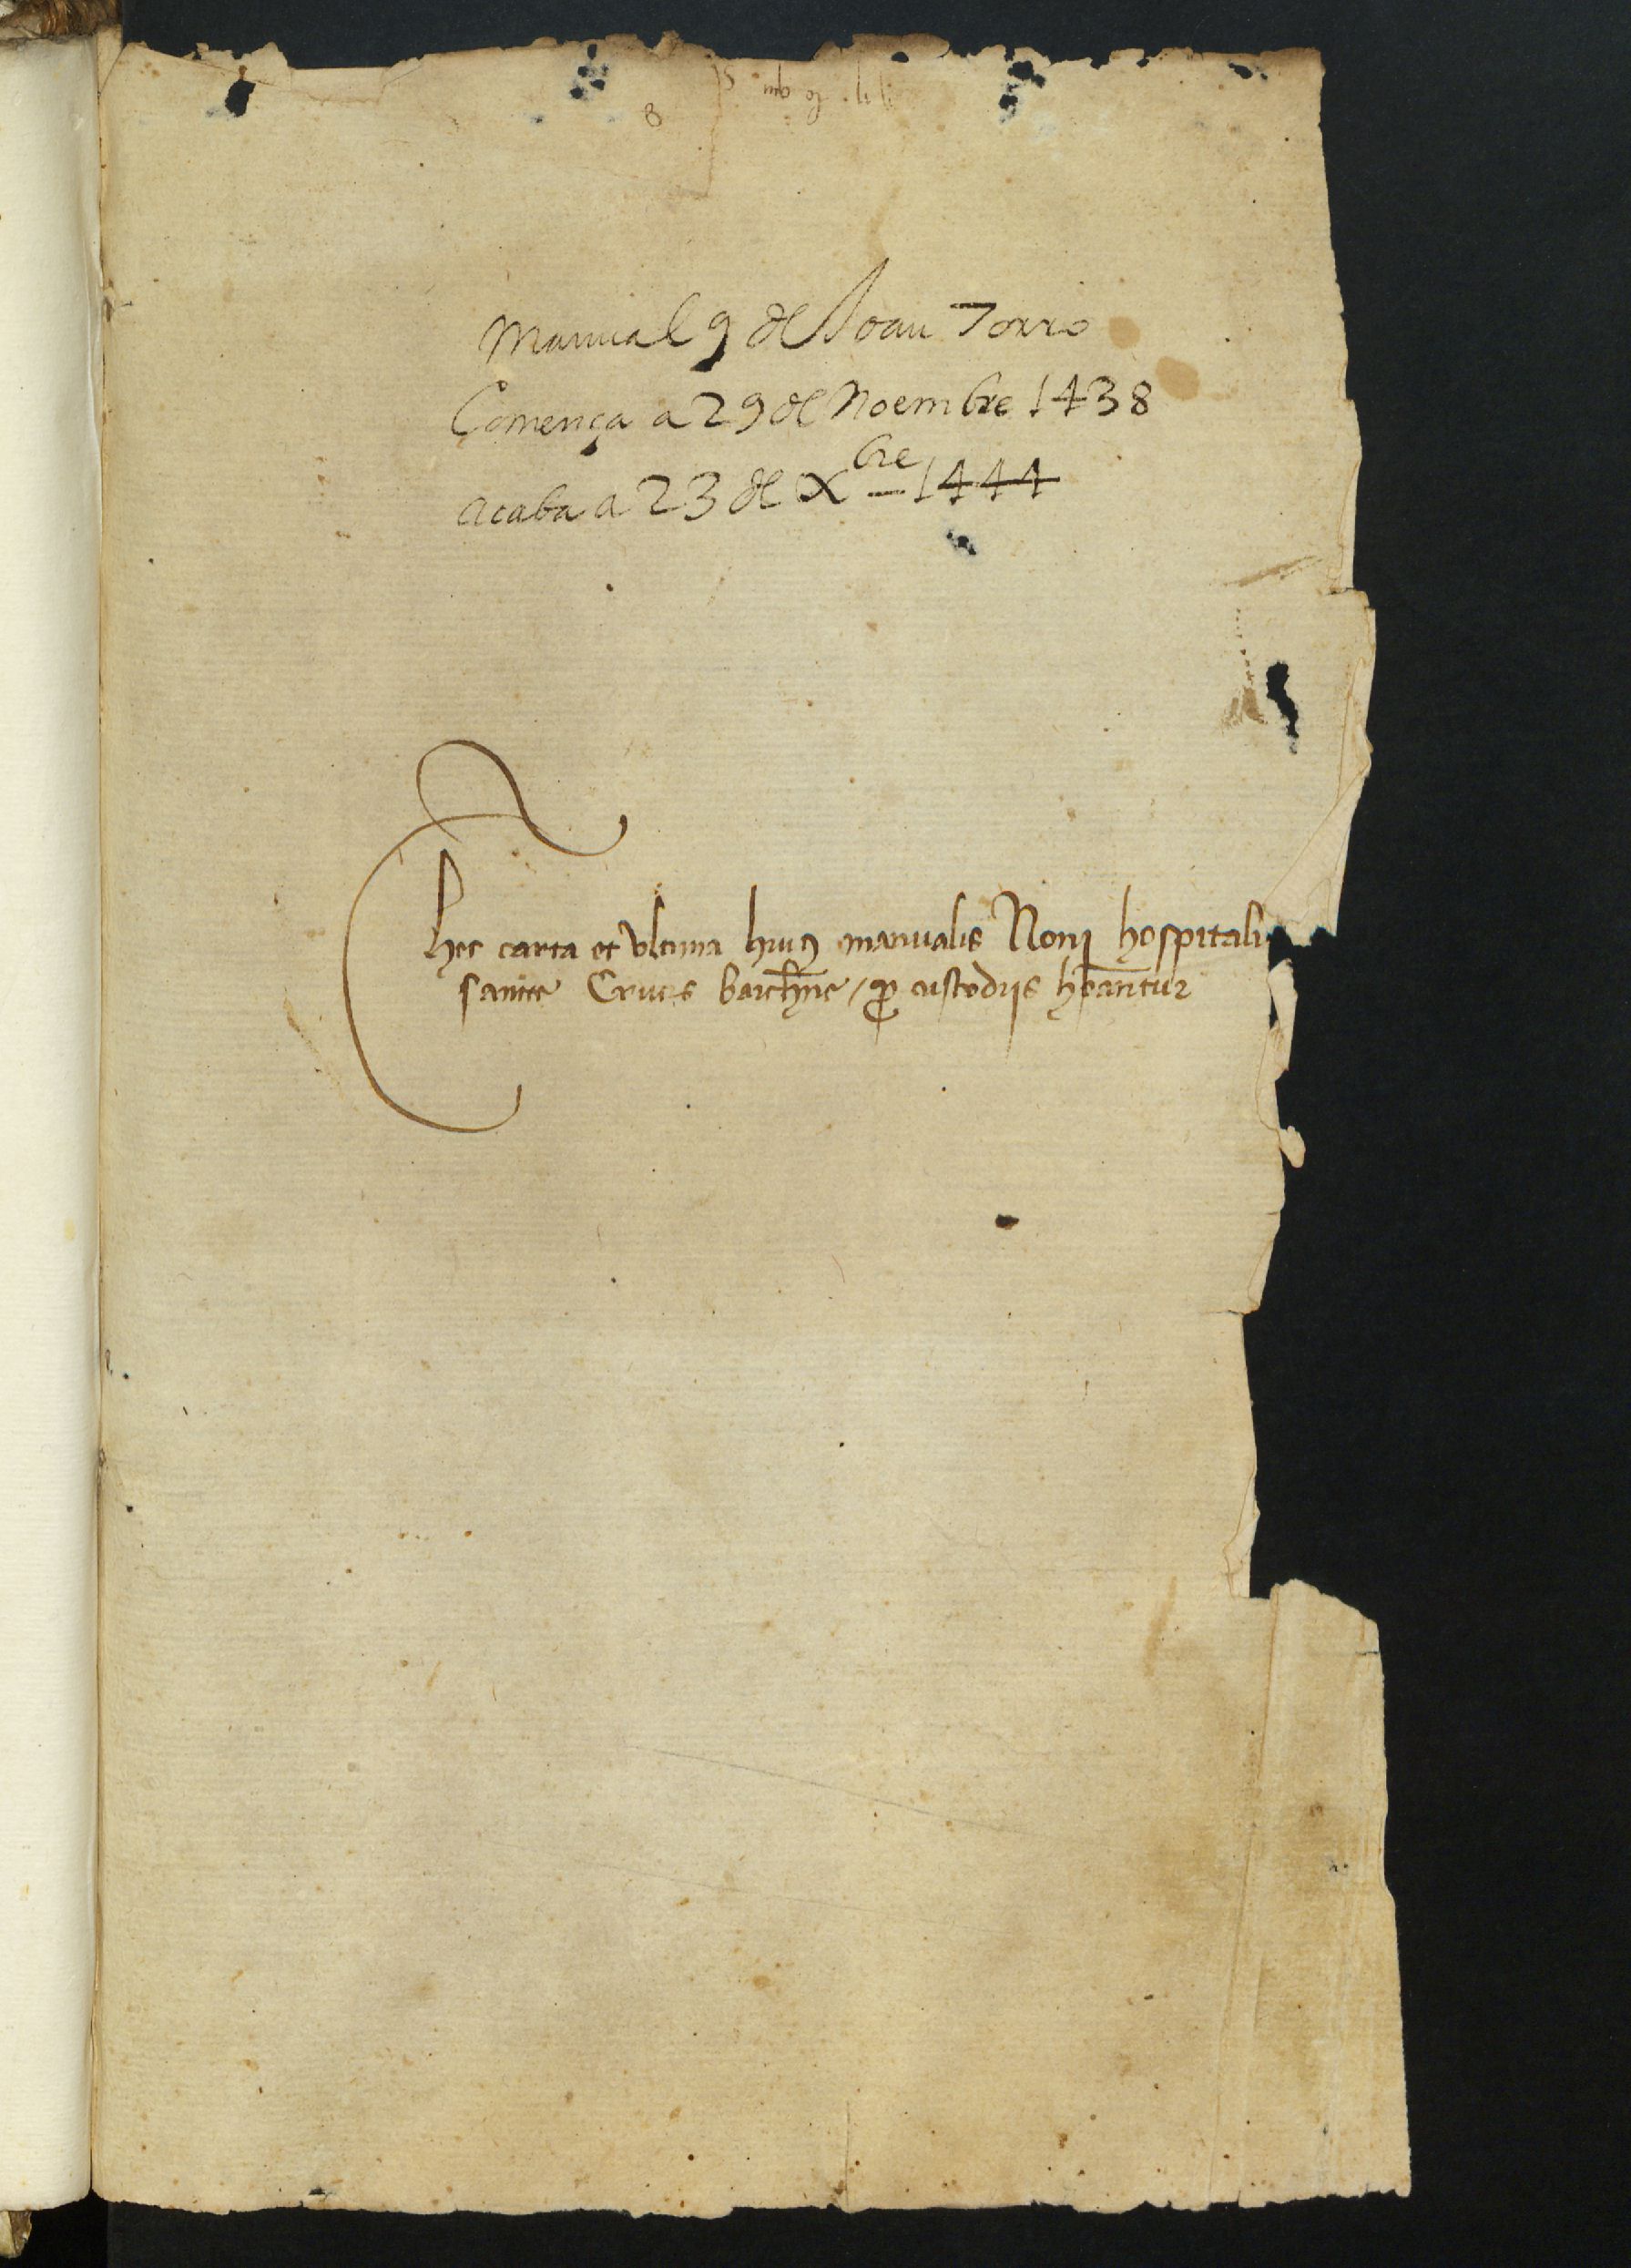 Manual 9 de Joan Torro
Comença a 29 de Noembre 1438
acaba a 23 de Xbre 1444
hec carta et ultima huiꝯ manualis Noni hospitali
sancte Crucis barchn̄e / ꝓ custodijs hēantur